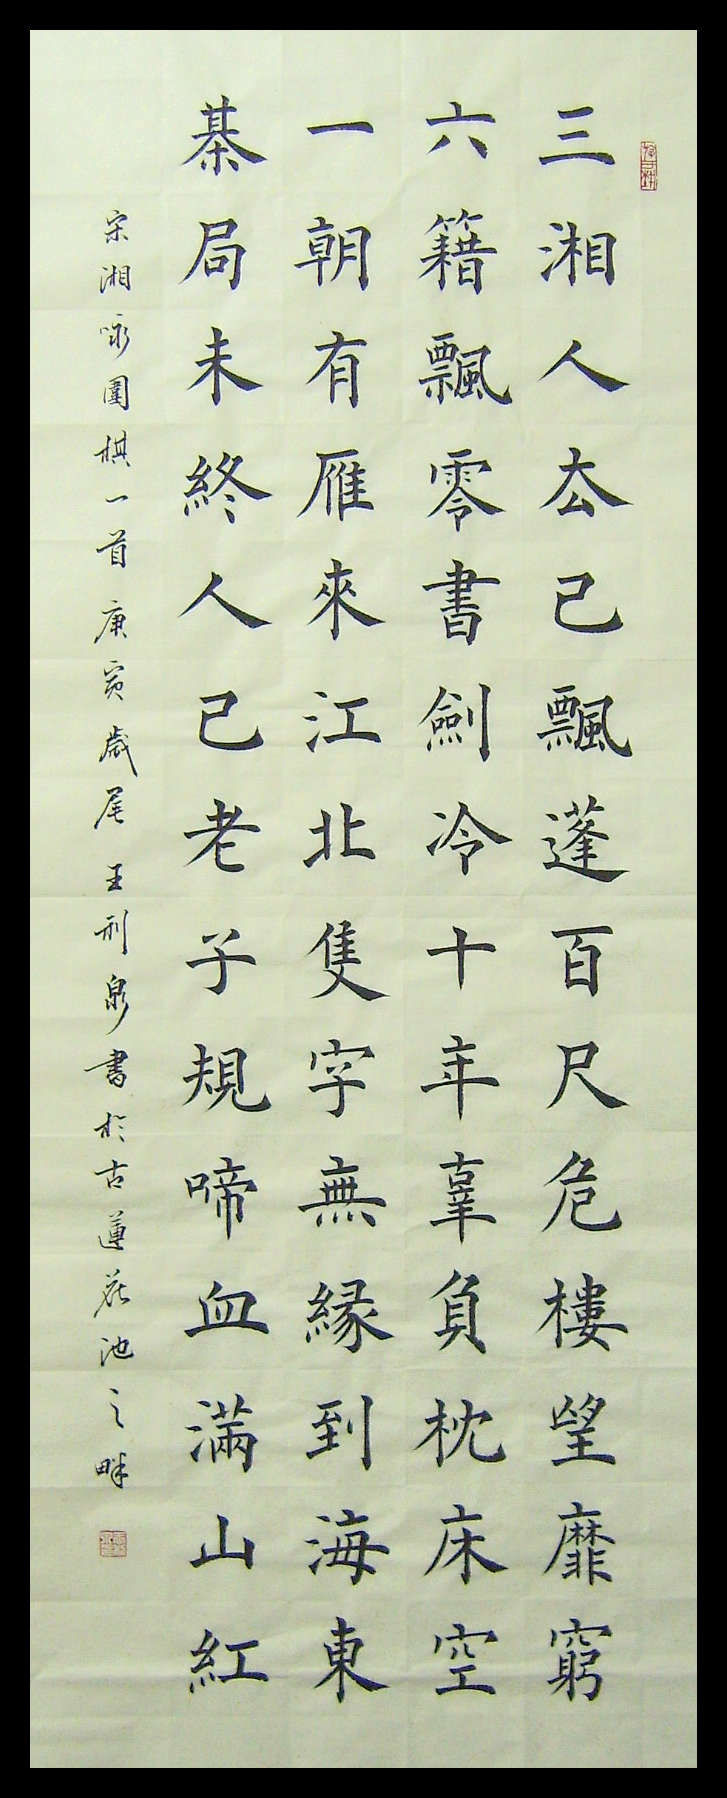 三湘人去已飄蓬百尺危樓望靡窮
六籍飄零書劍冷十年辜負枕床空
一朝有雁來江北隻字無緣到海東
棊局未終人已老子規啼血滿山紅
宋湘咏圍棋一首庚寅歲尾王刑泉書於古蓮花池之畔